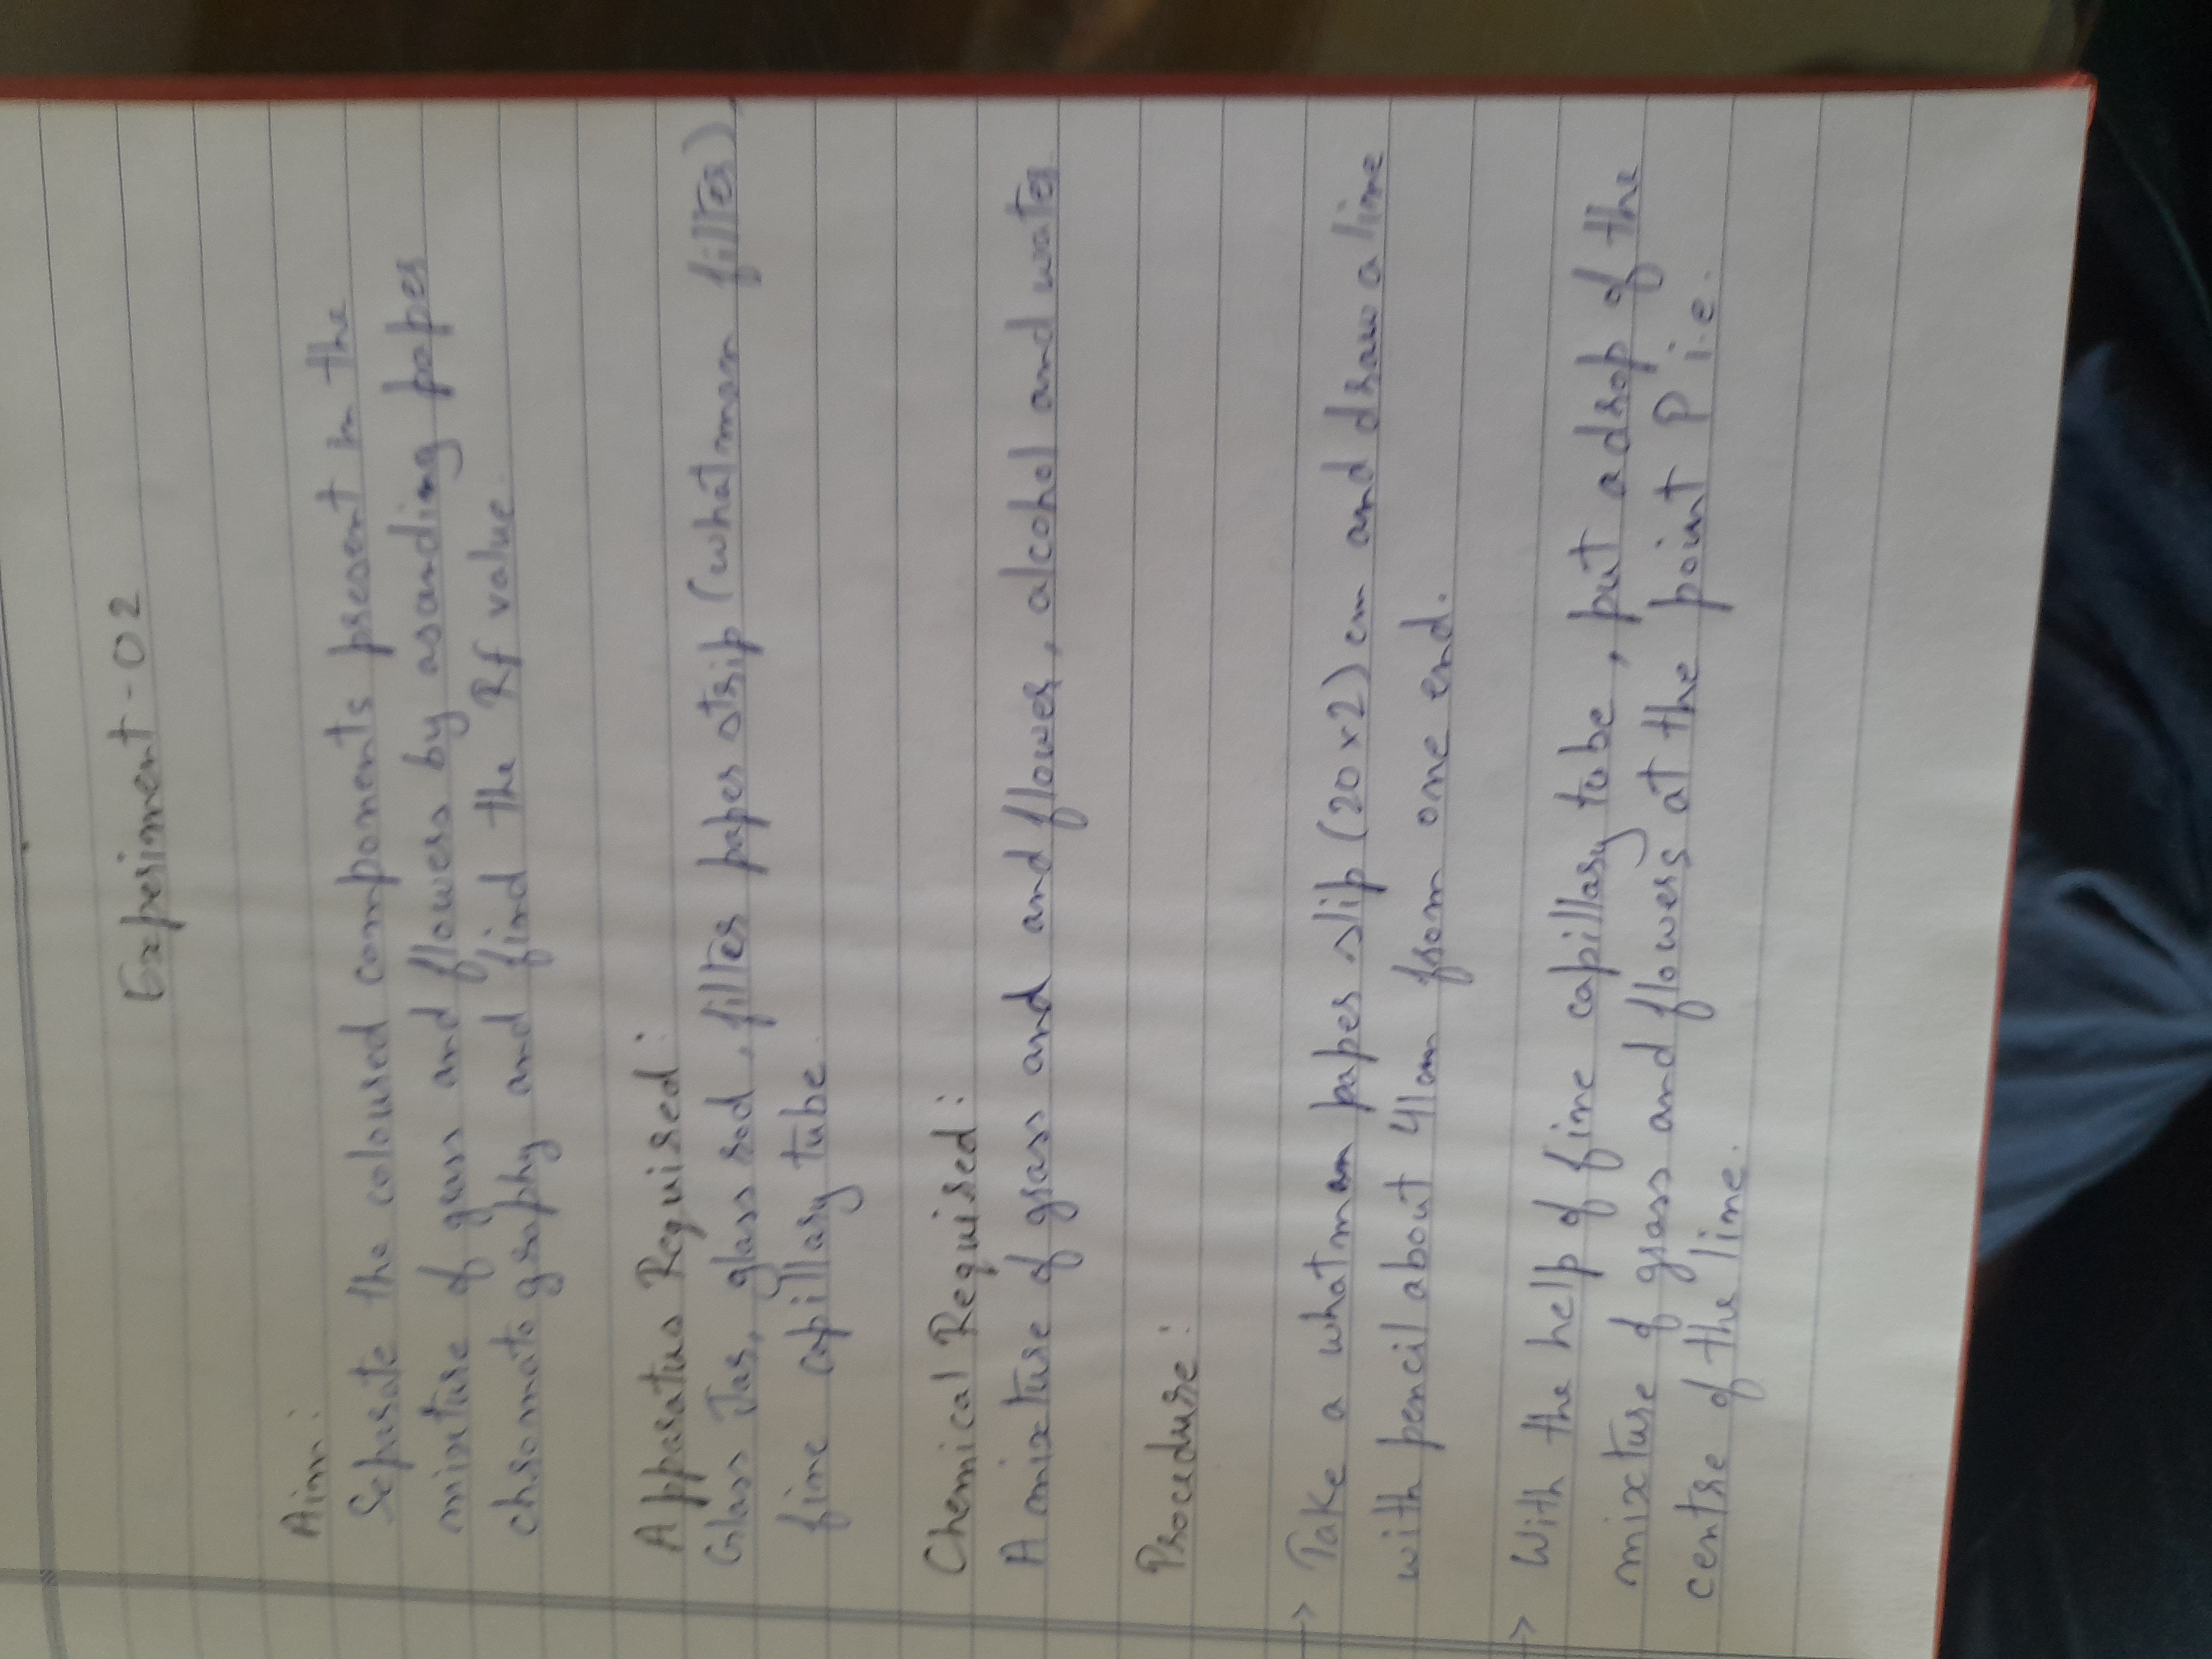 Experiment - 02
Aim:
Separate the coloured components present in the
mixture of grass and flowers by asanding paper
chromatography and find the Rf value.
Apparatus Required:
Glass Jar, glass rod, filter paper strip (whatman filter),
fine capillary tube.
Chemical Required:
A mixture of grass and and flower, alcohol and water
Procedure:
→ Take a whatman paper slip (20x2) cm and draw a line
with pencil about 4cm from one end.
→ With the help of fine capillary tube, put a drop of the
mixture of grass and flowers at the point P i.e.
centre of the line.